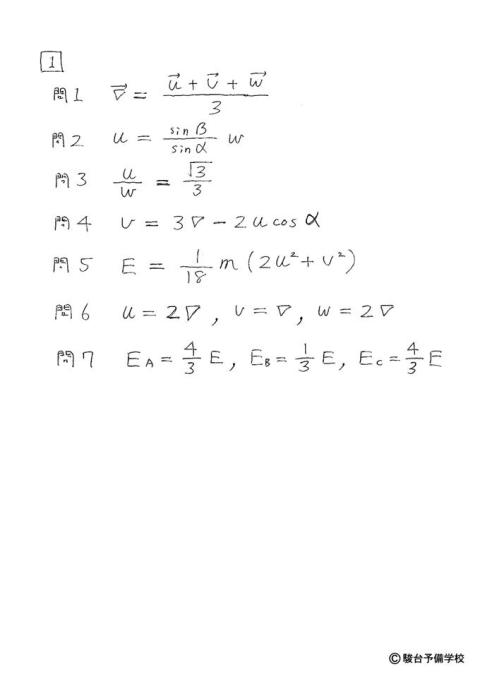 1
問1 \vec{V} = \frac{\vec{u} + \vec{v} + \vec{w}}{3}
問2 u = \frac{\sin β}{\sin α} w
問3 \frac{u}{w} = \frac{\sqrt{3}}{3}
問4 v = 3V − 2u cos α
問5 E = \frac{1}{18} m (2u² + v²)
問6 u = 2V , v = V , w = 2V
問7 E_A = \frac{4}{3} E , E_B = \frac{1}{3} E , E_C = \frac{4}{3} E
©駿台予備学校